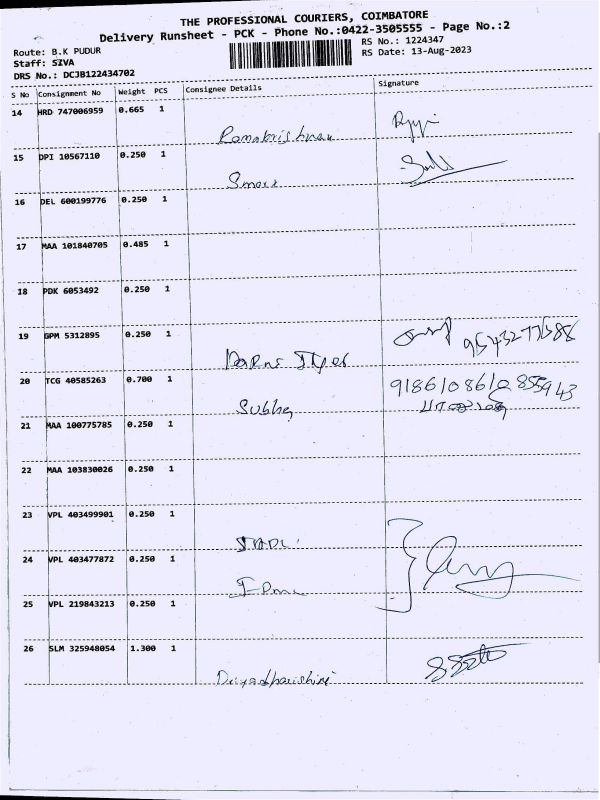 THE PROFESSIONAL COURIERS, COIMBATORE
Delivery Runsheet - PCK - Phone No.:0422-3505555 - Page No.:2
Route: B.K PUDUR
RS No.: 1224347
Staff: SIVA
RS Date: 13-Aug-2023
DRS No.: DCJB122434702
S No Consignment No Weight PCS Consignee Details Signature
14 HRD 747006959 0.665 1
Ramakrishnan
15 DPI 10567110 0.250 1
16 DEL 600199776 0.250 1
17 MAA 101840705 0.485 1
18 PDK 6053492 0.250 1
19 GPM 5312895 0.250 1
20 TCG 40585263 0.700 1
21 MAA 100775785 0.250 1
22 MAA 103830026 0.250 1
23 VPL 403499901 0.250 1
24 VPL 403477872 0.250 1
25 VPL 219843213 0.250 1
26 SLM 325948054 1.300 1